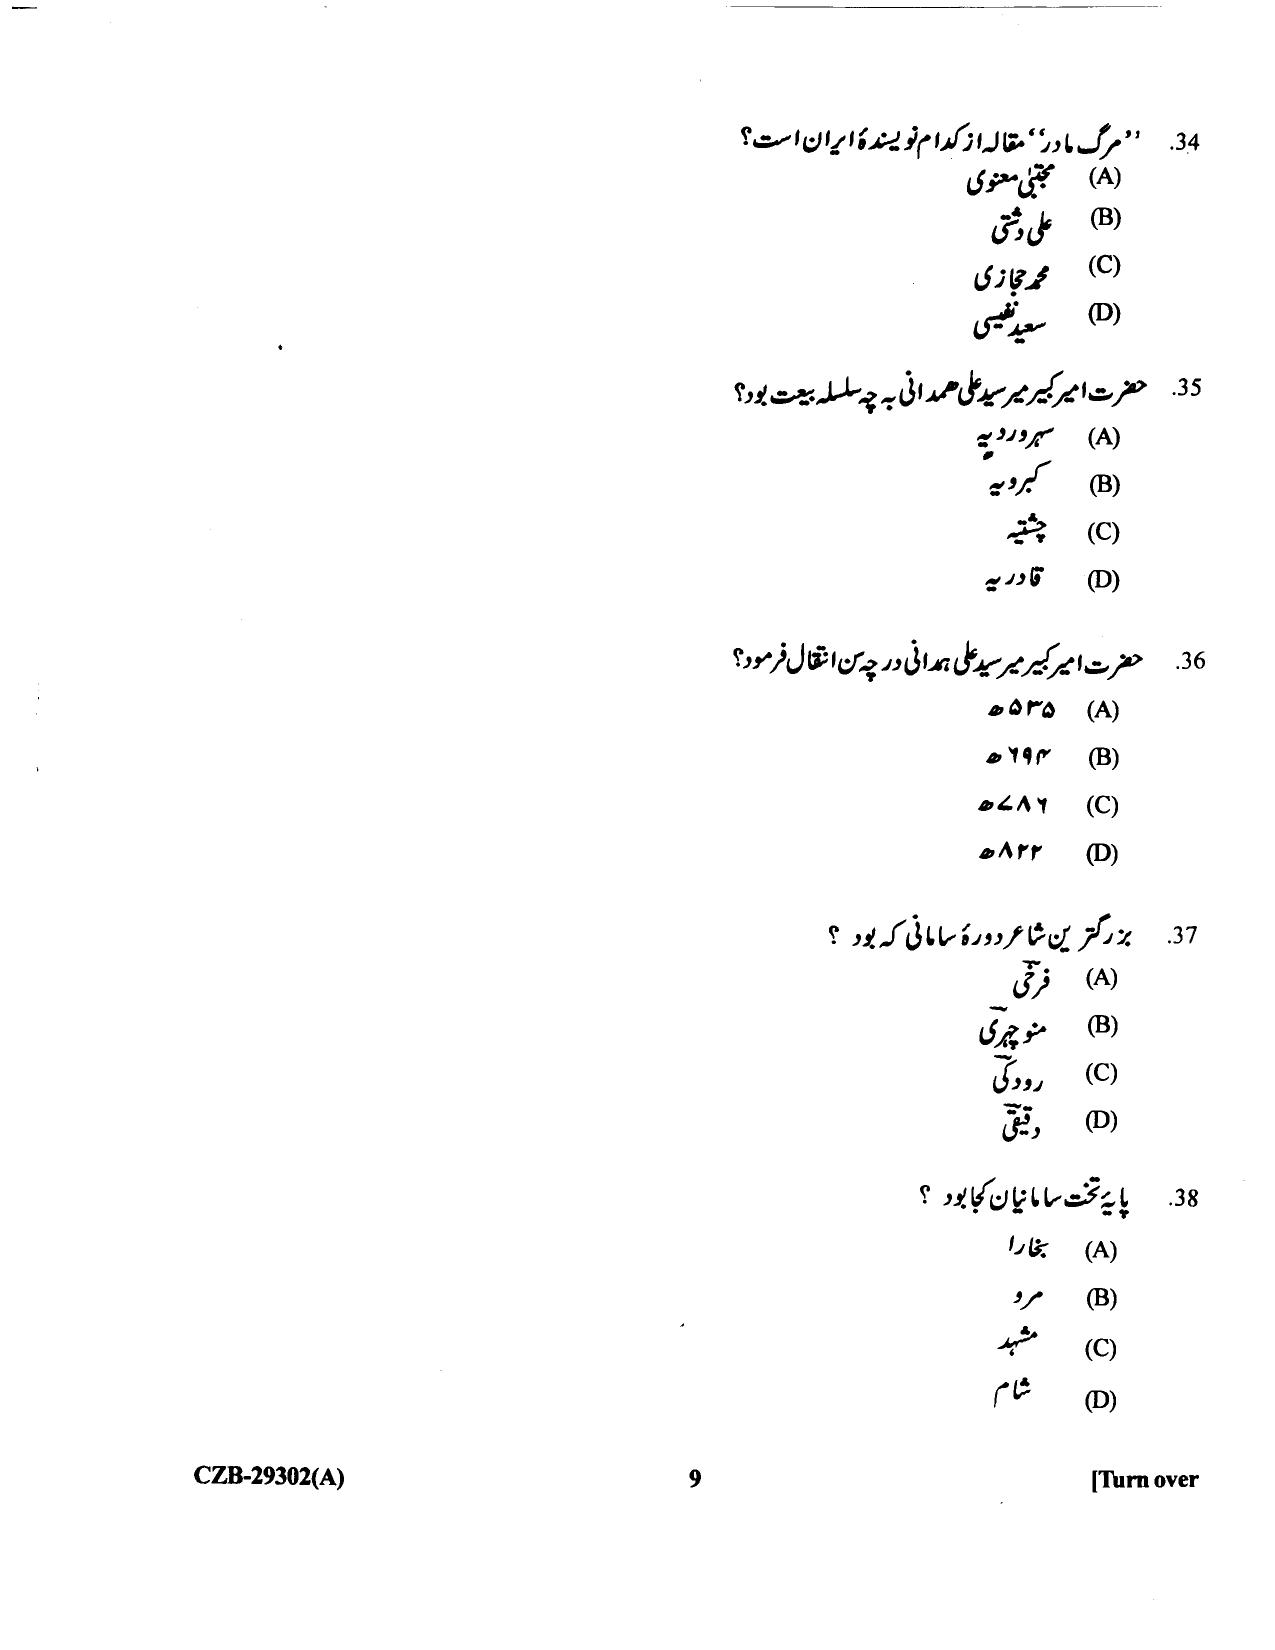 34. ”مرگ مادر“ مقاله از کدام نویسندهٔ ایران است؟
(A) مجتبیٰ معنوی
(B) علی دشتی
(C) محمد حجازی
(D) سعید نفیسی
35. حضرت امیر کبیر میر سید علی ھمدانی بہ چہ سلسلہ بیعت بود؟
(A) سہروردیہ
(B) کبرویہ
(C) چشتیہ
(D) قادریہ
36. حضرت امیر کبیر میر سید علی ہمدانی در چہ سن انتقال فرمود؟
(A) ۵۳۵ھ
(B) ۶۹۴ھ
(C) ۷۸۶ھ
(D) ۸۲۲ھ
37. بزرگترین شاعر دورهٔ سامانی کہ بود ؟
(A) فرخی
(B) منوچہری
(C) رودکی
(D) دقیقی
38. پایۂ تخت سامانیان کجا بود ؟
(A) بخارا
(B) مرو
(C) مشہد
(D) شام
CZB-29302(A) 9 [Turn over